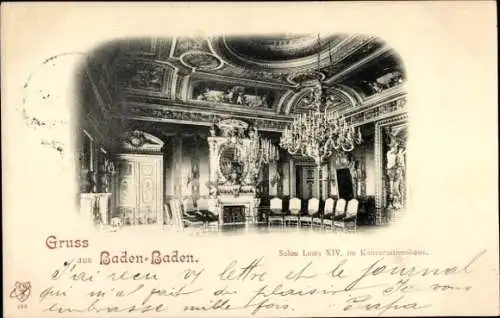 Gruss aus Baden-Baden.
Salon Louis XIV. im Konversationshaus.
J'ai reçu ta lettre et le journal
qui m'a fait du plaisir. Je vous
embrasse mille fois. Papa